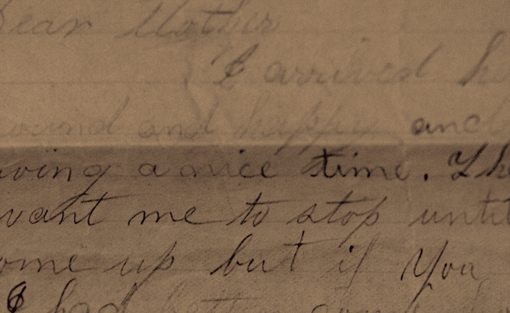 Dear Mother
I arrived h
ound and happy and
ving a nice time. The
want me to stop until
ome up but if you
I had better come ho